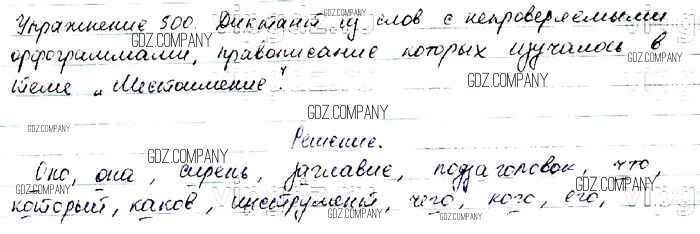 Упражнение 500. Диктант из слов с непроверяемыми
GDZ.COMPANY
орфограммами, правописание которых изучалось в
GDZ.COMPANY
теме "Местоимение".
GDZ.COMPANY
GDZ.COMPANY
GDZ.COMPANY
Решение.
GDZ.COMPANY
Оно, она, сирень, заглавие, подзаголовок, что,
GDZ.COMPANY
GDZ.COMPANY
который, каков, инструмент, чего, кого, его,
GDZ.COMPANY
GDZ.COMPANY
GDZ.COMPANY